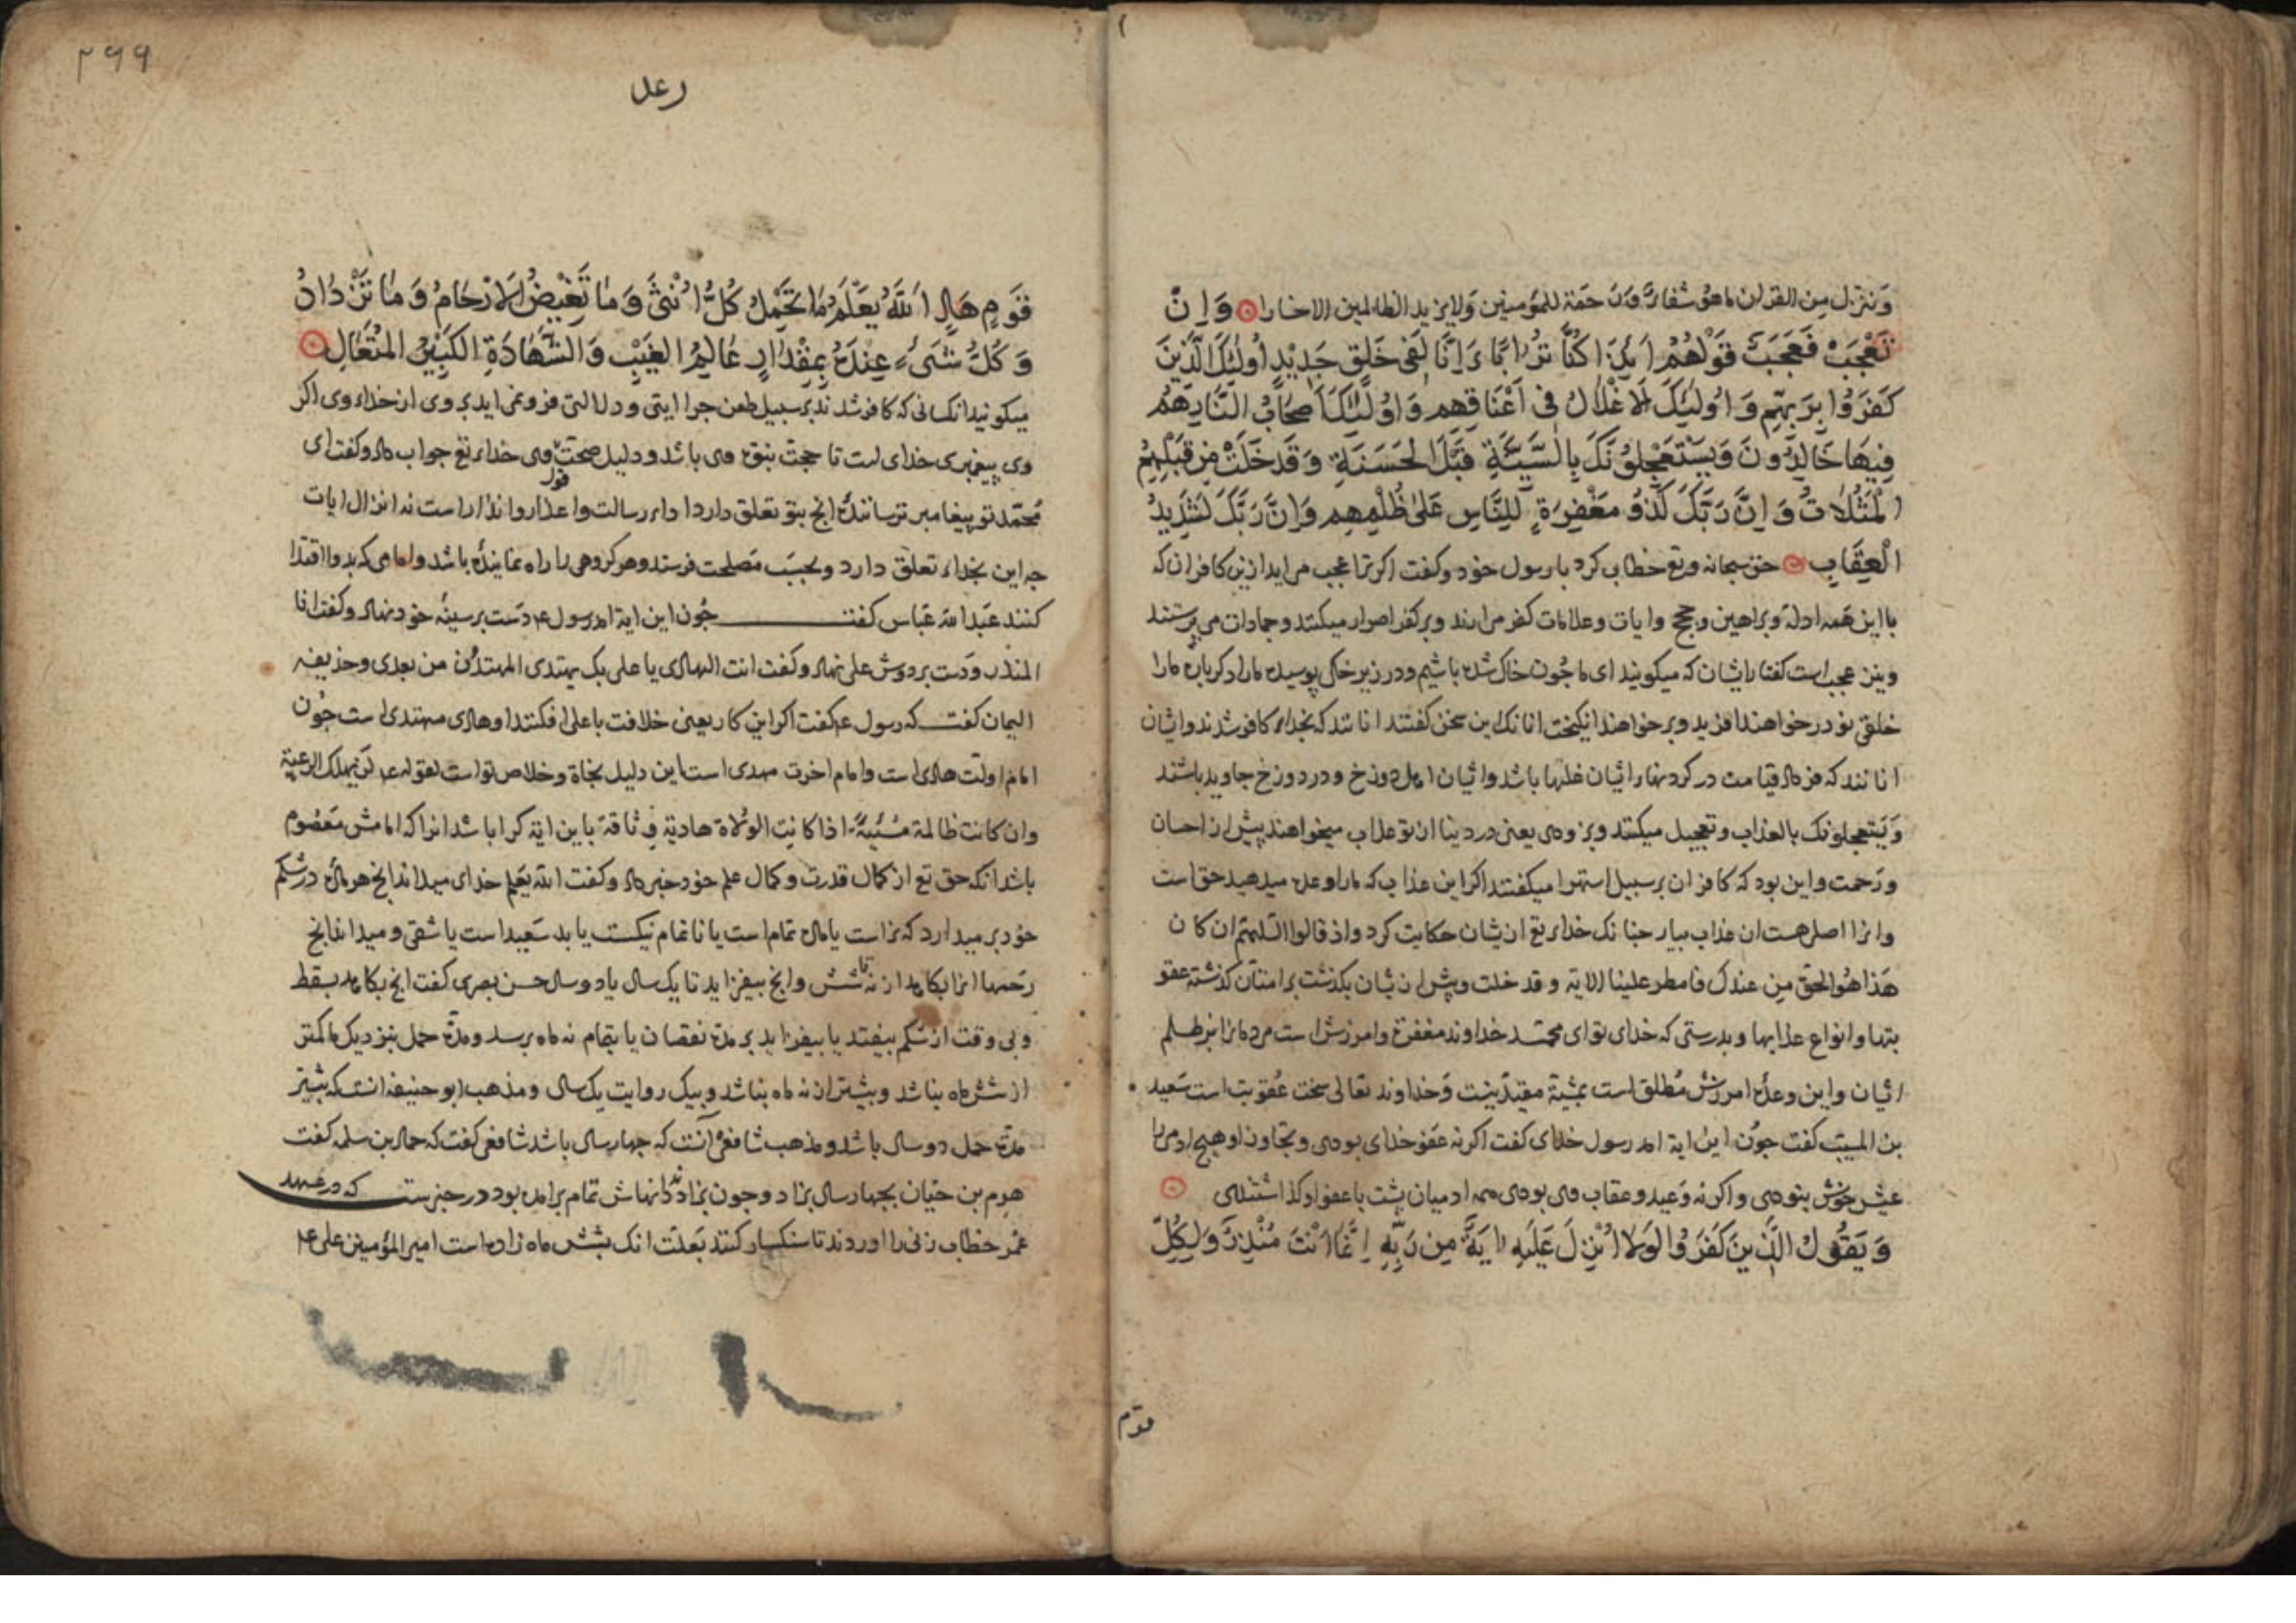 وننزل من القران ما هو شفاء و رحمة للمؤمنين ولا يزيد الظالمين الا خسارا وَاِنْ
تَعْجَبْ فَعَجَبٌ قَوْلُهُمْ اَئِذَا كُنَّا تُرَابًا ءَاِنَّا لَفِی خَلْقٍ جَدِيْدٍ اُولٰئِكَ الَّذِينَ
كَفَرُوا بِرَبِّهِم وَاُولٰئِكَ الْاَغْلَالُ فِی اَعْنَاقِهِم وَاُولٰئِكَ اَصْحَابُ النَّارِ هُمْ
فِيهَا خَالِدُونَ وَيَسْتَعْجِلُونَكَ بِالسَّيِّئَةِ قَبْلَ الْحَسَنَةِ وَقَدْ خَلَتْ مِن قَبْلِهِمُ
الْمَثُلَاتُ وَاِنَّ رَبَّكَ لَذُو مَغْفِرَةٍ لِلنَّاسِ عَلٰی ظُلْمِهِم وَاِنَّ رَبَّكَ لَشَدِيدُ
الْعِقَابِ حق سبحانه وتع خطاب کرد با رسول خود و کفت اکر ترا عجب می اید ازین کافران که
با این همه ادله و براهین و حجج و ایات و علامات کفر می ارند و بر کفر اصرار میکنند و جمادات می پرستند
و نیز عجب است کفتار ایشان که میکویند ای ما چون خاک شده باشیم و در زیر خاک پوسیده ما را دکر باره ما را
خلقی نو در خواهند افرید و بر خواهند انکیخت انانک این سخن کفتند انانند که بخدای کافر شدند و ایشان
انانند که فردای قیامت در کردنهای ایشان غلها باشد و ایشان اهل دوزخ و در دوزخ جاوید باشند
وَيَستعجلونك بالعذاب و تعجیل میکنند و بزودی یعنی در دنیا از تو عذاب میخواهند پیش از احسان
و رحمت و این بود که کافران بر سبیل استهزا میکفتند اکر این عذاب که ما را وعده میدهید حق است
و انرا اصلی هست ان عذاب بیار چنانک خدای تع از ایشان حکایت کرد و اذ قالوا اللهم ان کان
هَذا هُوَ الحق من عندك فامطر علینا الایة و قد خلت و پیش از ایشان بکذشت بر امتان کذشته عقو
بتها و انواع عذابها و بدرستی که خدای تو ای محمد خداوند مغفرة و امرزش است مردمانرا بر ظلم
ایشان و این وعده امرزش مطلق است بمشیة مقید نیست و خداوند تعالی سخت عقوبت است سعید
بن المسیب کفت چون این ایة امد رسول خدای کفت اکر نه عفو خدای بودی و تجاوز او هیچ ادمی را
عیش خوش نبودی و اکر نه وعید و عقاب وی بودی همه ادمیان پشت با عفو او کذاشتندی
وَيَقُولُ الَّذِينَ كَفَرُوا لَوْلَا اُنْزِلَ عَلَيْهِ اٰيَةٌ مِن رَبِّهِ اِنَّمَا اَنْتَ مُنْذِرٌ وَلِكُلِّ
قوم
۲۹۹
رعد
قَوْمٍ هَادٍ اَللّٰهُ يَعْلَمُ مَا تَحْمِلُ كُلُّ اُنْثٰی وَمَا تَغِيْضُ الْاَرْحَامُ وَمَا تَزْدَادُ
وَكُلُّ شَیْءٍ عِنْدَهُ بِمِقْدَارٍ عَالِمُ الْغَيْبِ وَالشَّهَادَةِ الْكَبِيْرُ الْمُتَعَالِ
میکویند انکسانی که کافر شدند بر سبیل طعن چرا ایتی و دلالتی فرو نمی اید بر وی از خدای وی اکر
وی پیغمبری خدای است تا حجت بنوة وی باشد و دلیل صحت قول وی خدای تع جواب داد و کفت ای
محمد تو پیغامبر ترساننده انچ بتو تعلق دارد اداء رسالت و اعذار و انذار است نه انزال ایات
چه این بخدای تعلق دارد و بحسب مصلحت فرستد و هر کروهی را راه نماینده باشد و امامی که بدو اقتدا
کنند عبدالله عباس کفت چون این ایة امد رسول ع دست بر سینه خود نهاد و کفت انا
المنذر و دست بر دوش علی نهاد و کفت انت الهادی یا علی بک یهتدی المهتدون من بعدی و حذیفه
الیمان کفت که رسول ع کفت اکر این کار یعنی خلافت با علی افکنند او هادی مهتدی است چون
امام اولت هادی است و امام اخرت مهدی است این دلیل نجاة و خلاص تو است لقوله ع لن یهلک الرعیة
وان کانت ظالمة مسیئة اذا کانت الولاة هادیة فی ثاقة باین ایة کرا باشد انرا که امامش معصوم
باشد انکه حق تع از کمال قدرت و کمال علم خود خبر داد و کفت الله یعلم خدای میداند انچ هر ماده در شکم
خود بر میدارد که نر است یا ماده تمام است یا ناتمام نیکست یا بد سعید است یا شقی و میداند انچ
رحمها انرا بکاهد از نه تا شش و انچ بیفزاید تا یک سال یا دو سال حسن بصری کفت انچ بکاهد بسقط
و بی وقت از شکم بیفتد یا بیفزاید بر مدة نقصان یا بتمام نه ماه برسد و مدة حمل بنزدیک ما کمتر
از شش ماه نباشد و بیشتر از نه ماه نباشد و بیک روایت یک سال و مذهب ابو حنیفه انست که بیشتر
مدة حمل دو سال باشد و مذهب شافعی انست که چهار سال باشد شافعی کفت که حماد بن سلمه کفت
هرم بن حیان بچهار سال بزاد و چون بزادند دندانهاش تمام بر امده بود و در خبرست که در عهد
عمر خطاب زنی را اوردند تا سنکسار کنند بعلت انک بشش ماه زاده است امیر المؤمنین علی ع